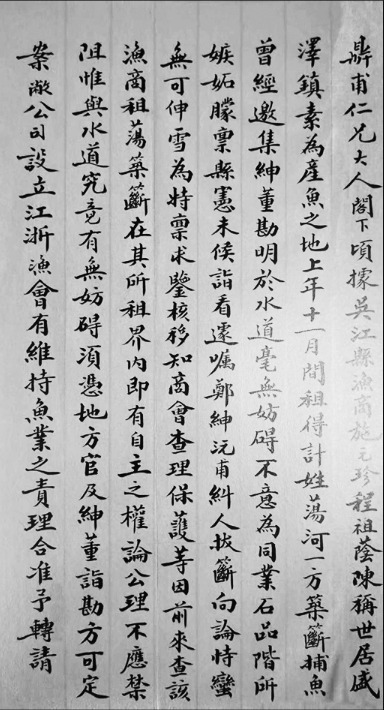 鼎甫仁兄大人閣下頃據吳江縣漁商施元珍程祖蔭陳稱世居盛
澤鎮素為產魚之地上年十一月間租得計姓蕩河一方築籪捕魚
曾經邀集紳董勘明於水道毫無妨碍不意為同業石品階所
嫉妬朦稟縣憲未候詣看遽囑鄭紳沅甫糾人拔籪向論恃蠻
無可伸雪為特稟求鑒核移知商會查理保護等因前來查該
漁商租蕩築籪在其所租界內即有自主之權論公理不應禁
阻惟與水道究竟有無妨碍須憑地方官及紳董詣勘方可定
案敝公司設立江浙漁會有維持魚業之責理合准予轉請